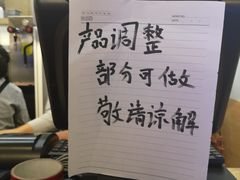 产品调整
部分可做
敬请谅解